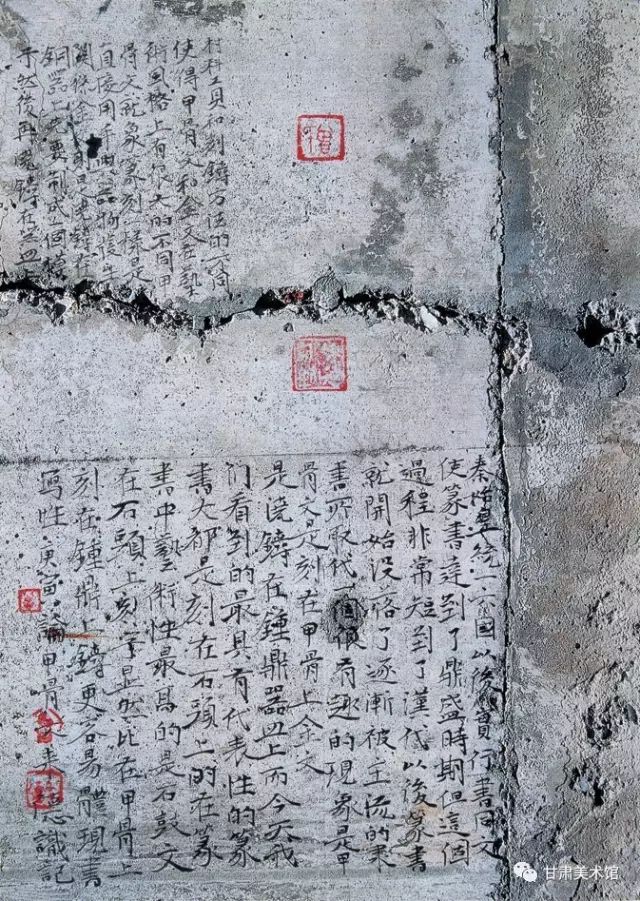 材料工具和刻鑄方法的不同
使得甲骨文和金文在藝
術風格上有很大的不同甲
骨文就象篆刻一樣是
直接用手
銅器上先要制成一個模
子然後再澆鑄在
秦始皇統一六國以後實行書同文
使篆書達到了鼎盛時期但這個
過程非常短到了漢代以後篆書
就開始沒落了逐漸被主流的隶
書所取代一個很有趣的現象是甲
骨文是刻在甲骨上金文
是澆鑄在鍾鼎器皿上而今天我
們看到的最具有代表性的篆
書大都是刻在石頭上的在篆
書中藝術性最高的是石鼓文
在石頭上刻字显然比在甲骨上
刻在鍾鼎上鑄更容易體現書
寫性 庚寅 論甲骨文 德識記
甘肃美术馆